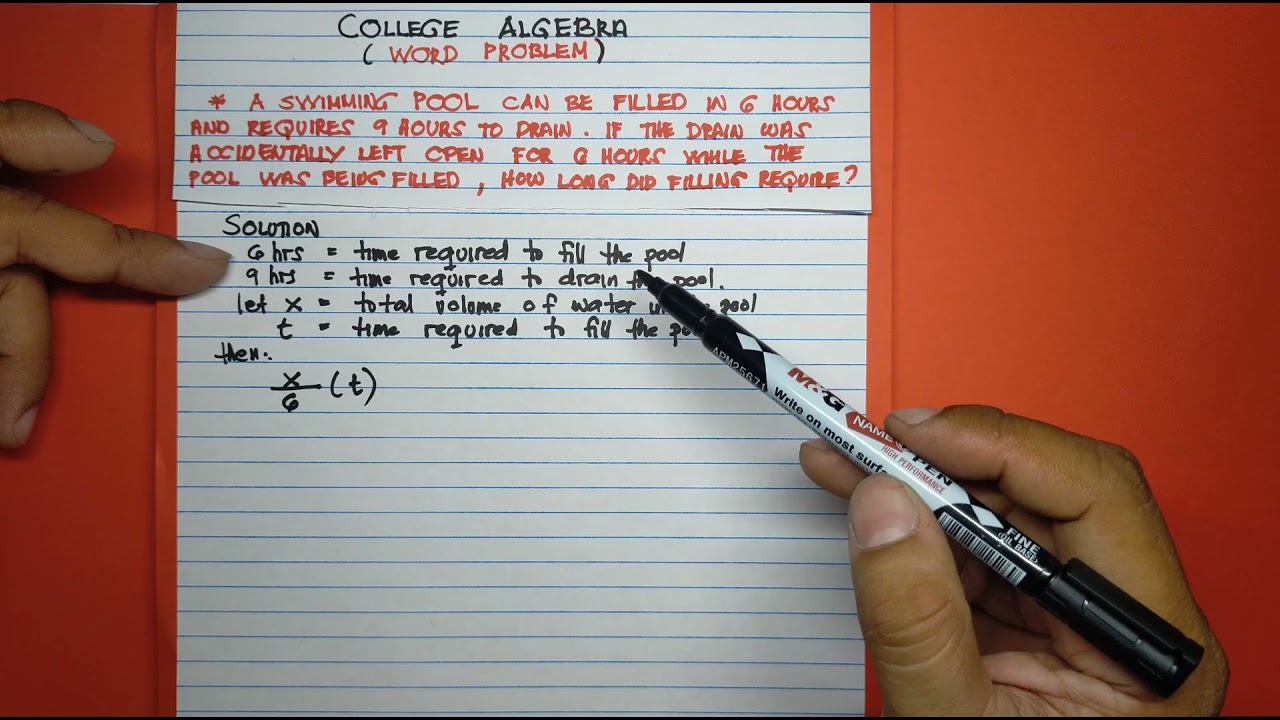 COLLEGE ALGEBRA
(WORD PROBLEM)
* A SWIMMING POOL CAN BE FILLED IN 6 HOURS
AND REQUIRES 9 HOURS TO DRAIN. IF THE DRAIN WAS
ACCIDENTALLY LEFT OPEN FOR 6 HOURS WHILE THE
POOL WAS BEING FILLED, HOW LONG DID FILLING REQUIRE?
SOLUTION
6 hrs = time required to fill the pool
9 hrs = time required to drain the pool.
let x = total volume of water pool
t = time required to fill the
then:
x/6 (t)
APM25671
M&G
NAME PEN
HIGH PERFORMANCE
Write on most
FINE
OIL BASED